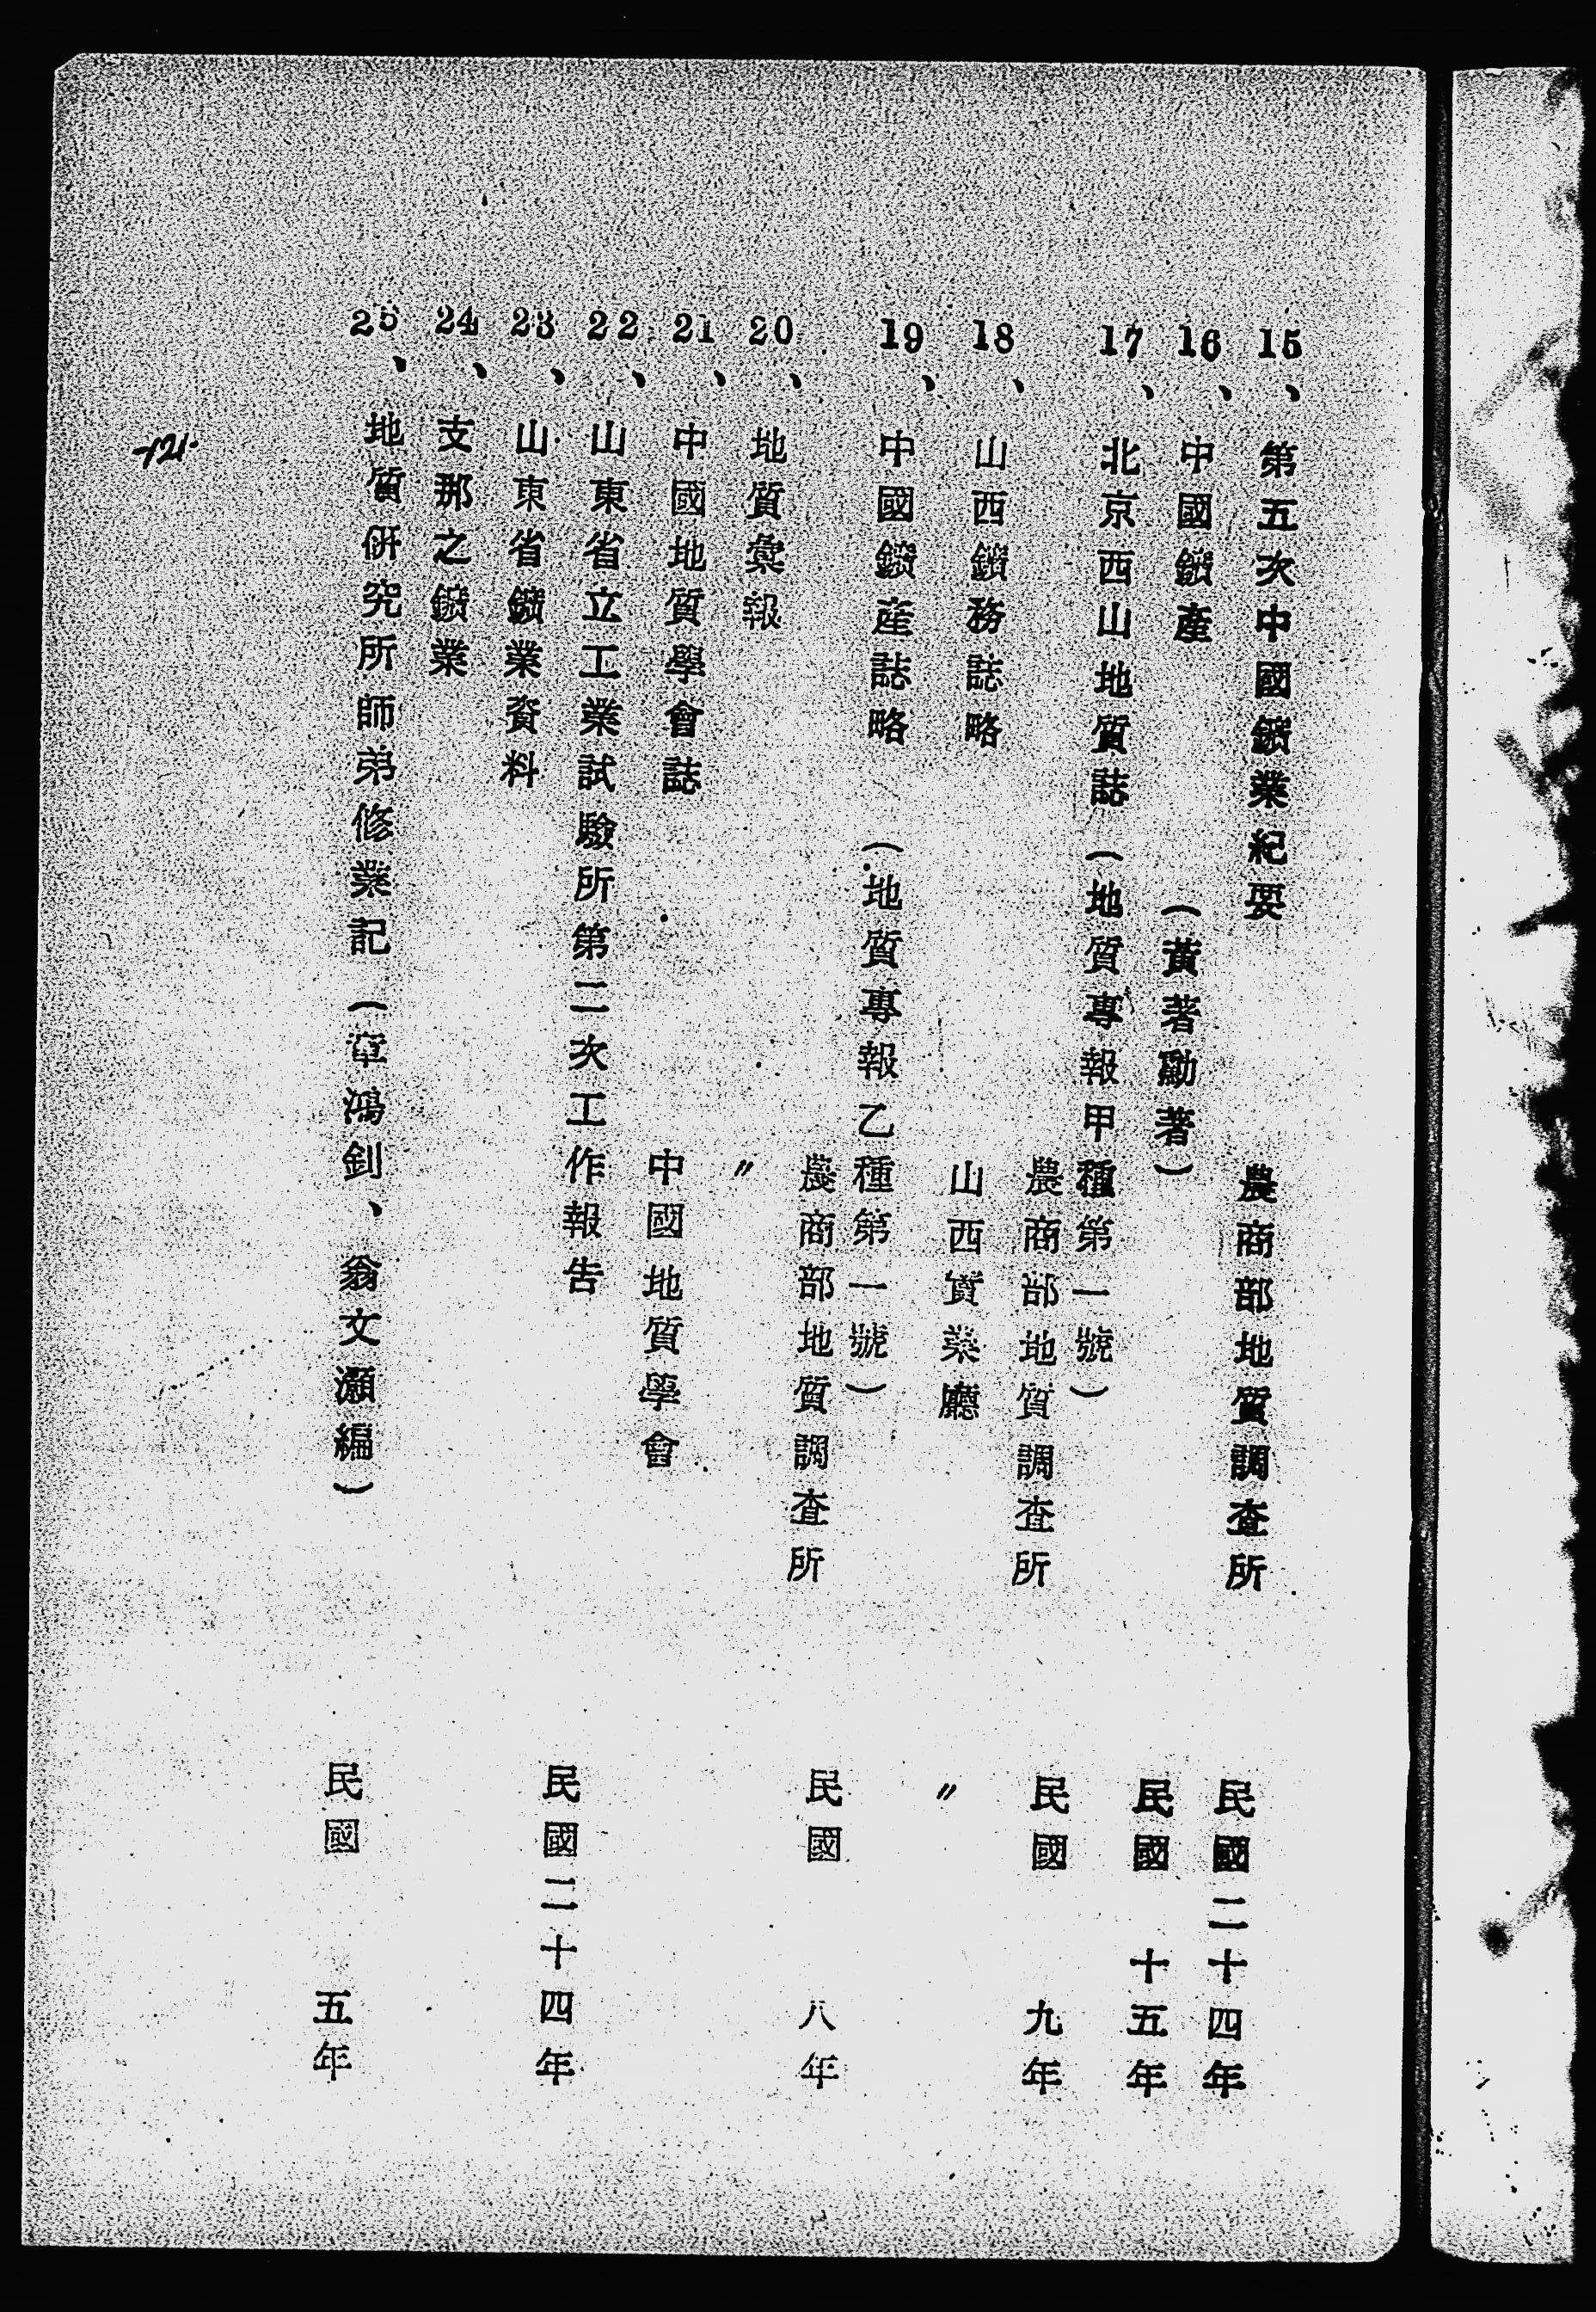 15、第五次中國鑛業紀要 農商部地質調查所 民國二十四年
16、中國鑛產 (黃著勛著) 民國 十五年
17、北京西山地質誌 (地質專報甲種第一號)
農商部地質調查所 民國 九年
18、山西鑛務誌略 山西實業廳 〃
19、中國鑛產誌略 (地質專報乙種第一號)
農商部地質調查所 民國 八年
20、地質彙報 〃
21、中國地質學會誌 中國地質學會
22、山東省立工業試驗所第二次工作報告 民國二十四年
23、山東省鑛業資料
24、支那之鑛業
25、地質研究所師弟修業記 (章鴻釗、翁文灝編) 民國 五年
-121-